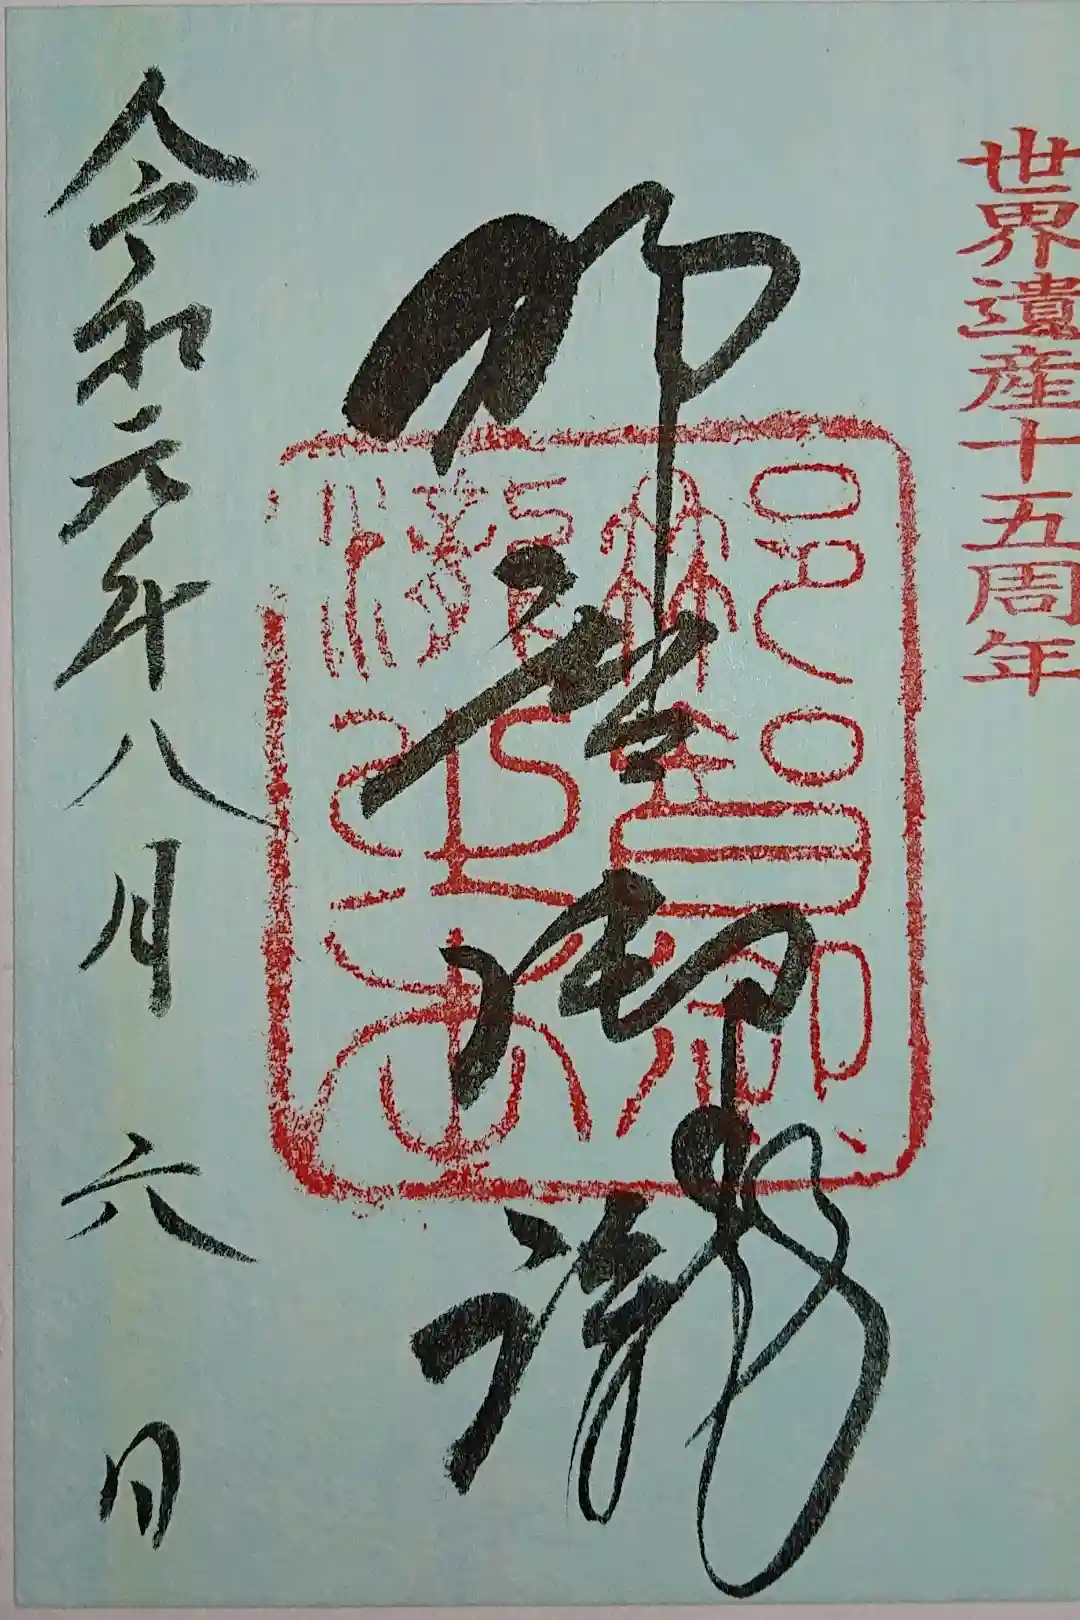 世界遺産十五周年
那智御瀧
令和元年八月六日